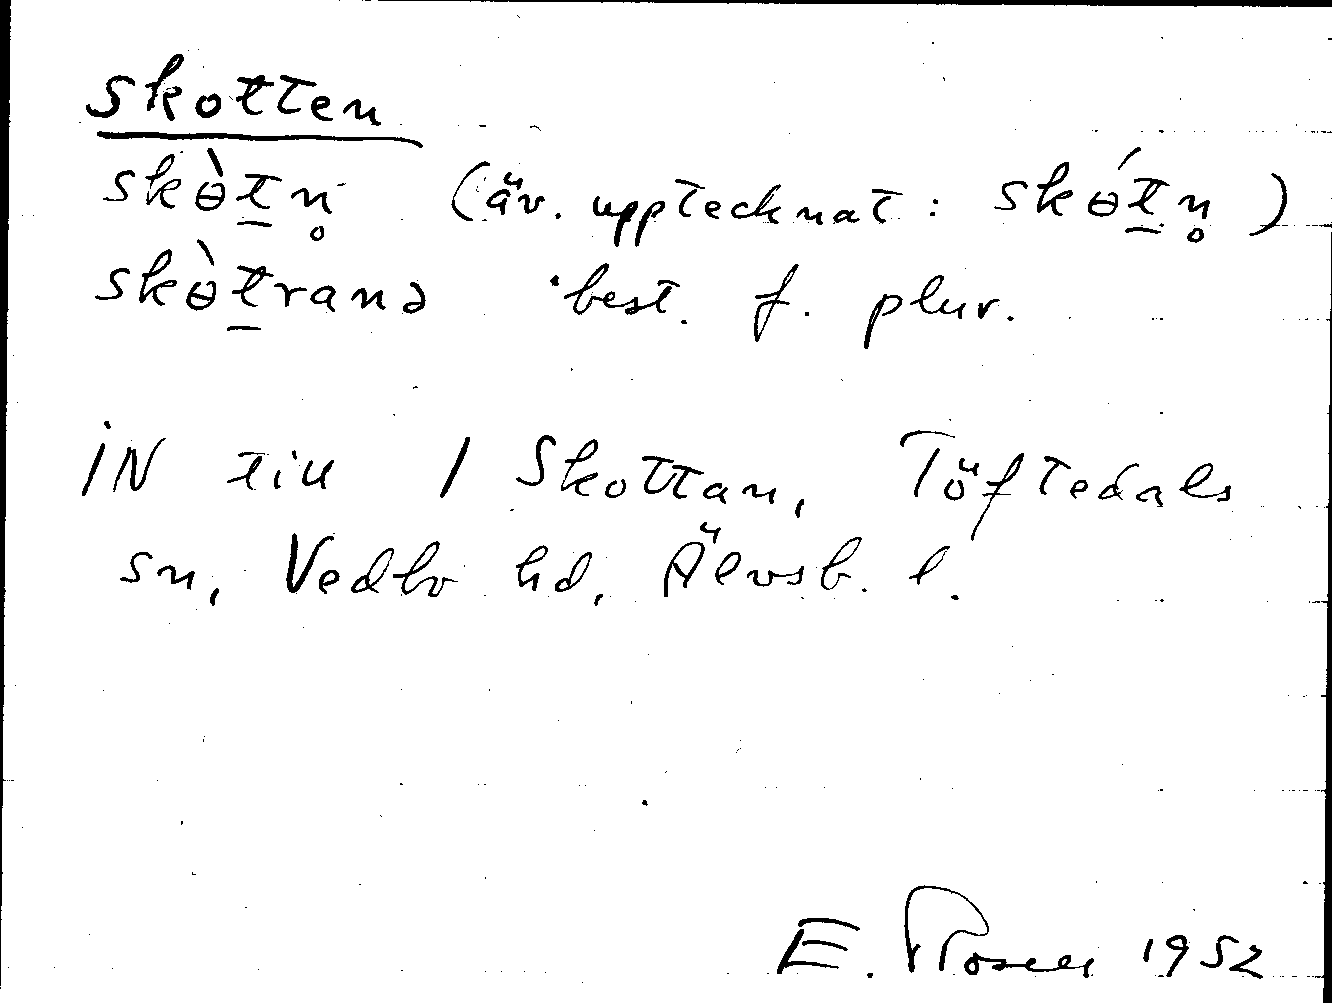 skotten
skɵ̀t̠n̥ (äv. upptecknat: skɵ́t̠n̥)
skɵ̀t̠ranə best. f. plur.
IN till 1 Skottan, Töftedals
sn, Vedbo hd, Älvsb. l.
E. Rosell 1952